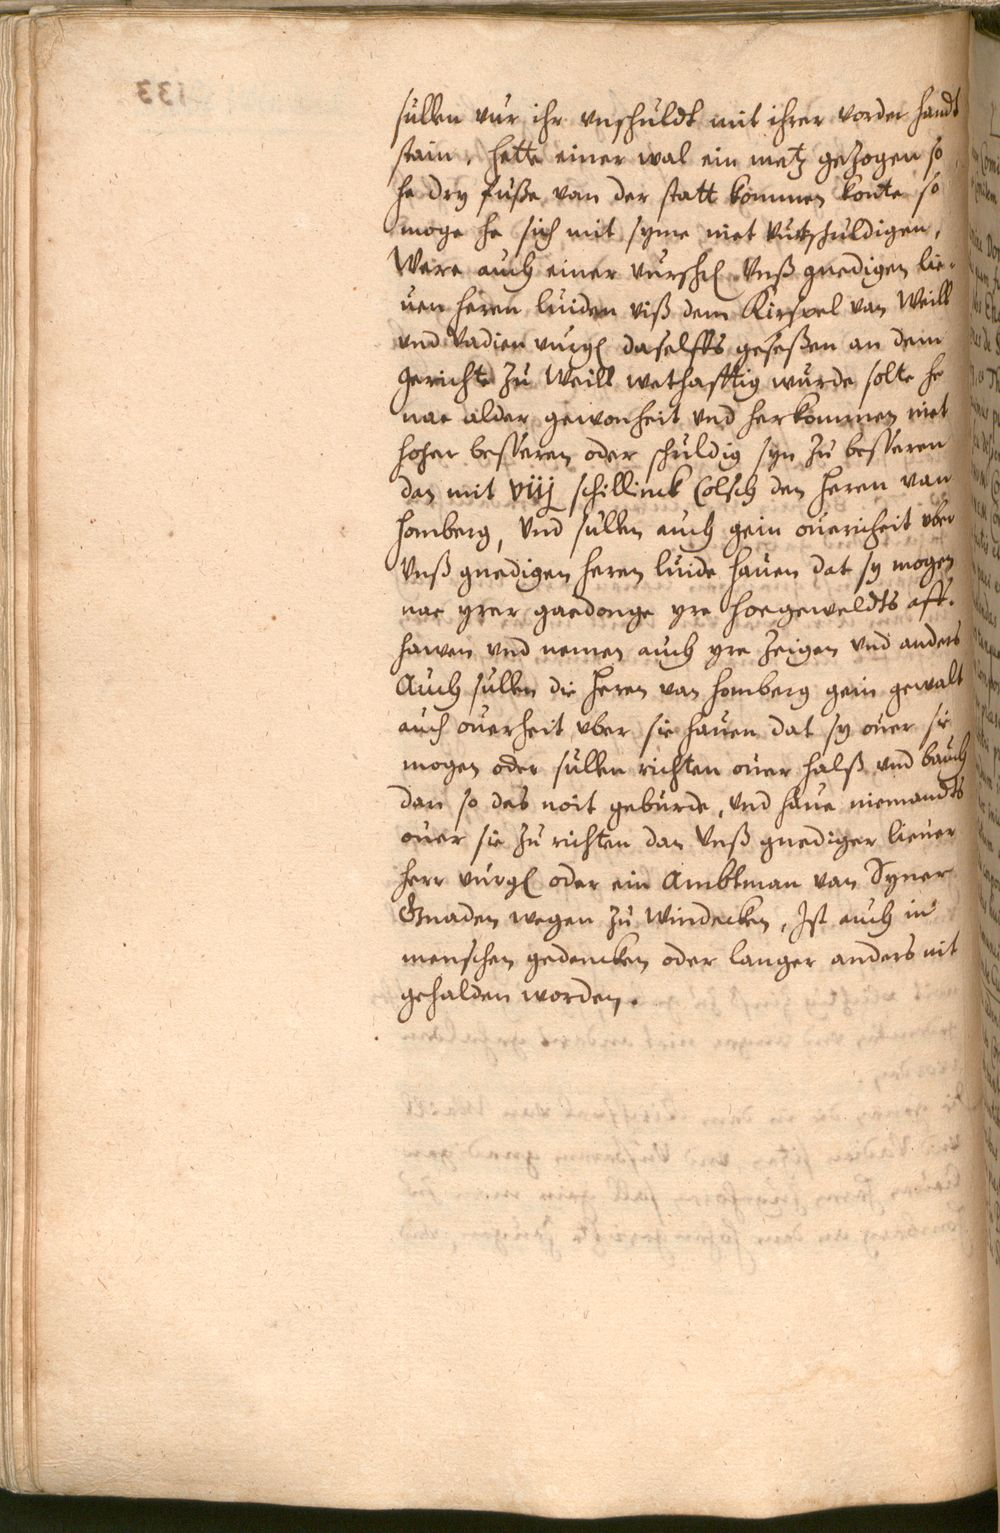 sullen vur ihr vnschuldt mit ihrer vorder handt
stain, hette einer wal ein metz gezogen so
he dry fuße van der statt kommen konte so
moge he sich mit syme niet vntschuldigen,
Were auch einer vursch. Vnß gnedigen lie-
uen heren luiden viß dem Kirspel van Weill
vnd Ladien vurg. daselffs geseßen an dem
gerichte zu Weill wethafftig wurde solte he
nae alder gewonheit vnd herkommen niet
hoher besseren oder schuldig syn zu besseren
dan mit viij schillinck Colsch den heren van
homberg, vnd sullen auch gein ouericheit vber
Vnß gnedigen heren luide hauen dat sy mogen
nae yrer gaedonge yre hoegeweldts aff-
hawen vnd nemen auch yre zeigen vnd anders
Auch sullen die heren van homberg gein gewalt
auch ouerheit vber sie hauen dat sy ouer sie
mogen oder sullen richten ouer halß vnd bauch
dan so des noit geburde, vnd haue niemandts
ouer sie zu richten dan Vnß gnediger lieuer
herr vurg. oder ein Ambtman van Syner
Gnaden wegen zu Windecken, Ist auch in
menschen gedencken oder langer anders nit
gehalden worden.